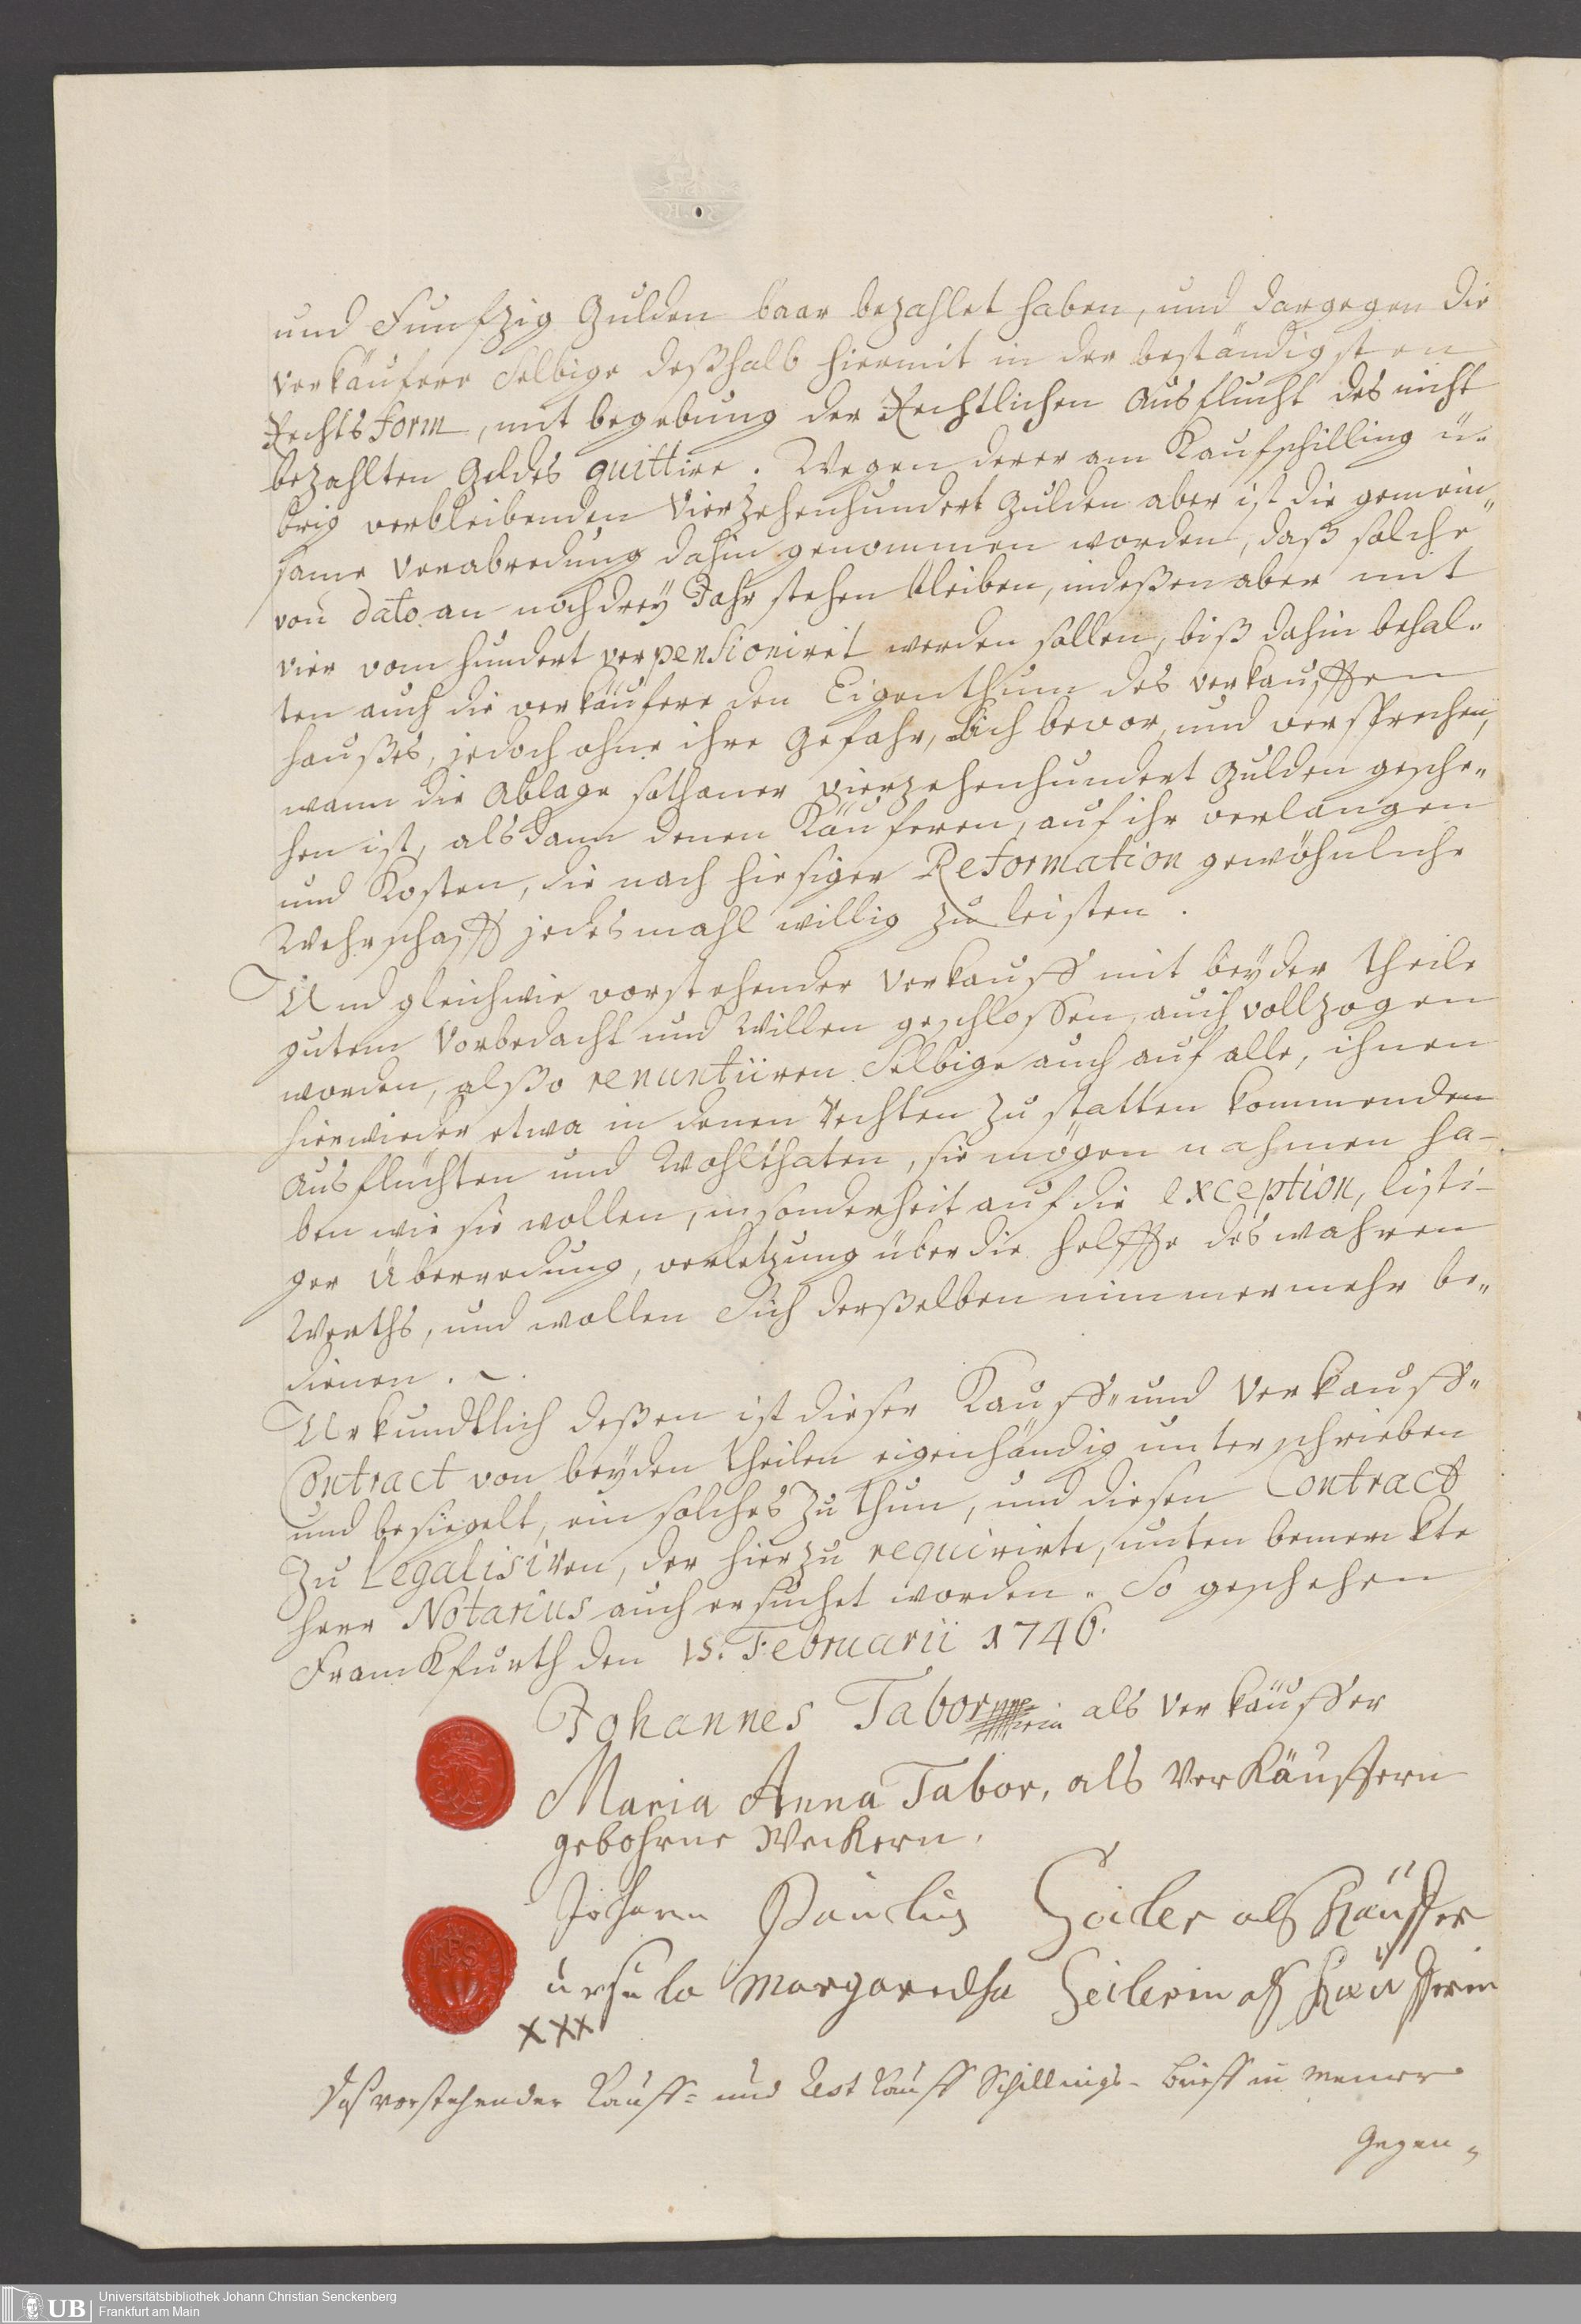 und Funfzig Gulden baar bezahlet haben, und dargegen die
Verkäufere Selbige deßhalb hiermit in der beständigsten
Rechts form, mit begebung der Rechtlichen Ausflucht des nicht
bezahlten Geldes quittire. Wegen derer am Kaufschilling ü-
brig verbleibenden Vierzehenhundert Gulden aber ist die gemein„
same Verabredung dahin genommen worden, daß solche
von dato an noch drey Jahr stehen bleiben, indeßen aber mit
vier vom hundert verpensioniret werden sollen, biß dahin behal-
ten auch die verkäufere den Eigenthum des verkaufften
Haußes, jedoch ohne ihre Gefahr, Sich bevor, und versprechen,
wann die Ablage sothaner vierzehenhundert Gulden gesche„
hen ist, alsdann denen Käuferen, auf ihr verlangen
und Kosten, die nach hiesiger Reformation gewöhnliche
Wehrschafft jedesmahl willig zu leisten.
Und gleichwie vorstehender Verkauff mit beyder Theile
gutem Vorbedacht und Willen geschlossen, auch vollzogen
worden, alßo renuntiiren Selbige auch auf alle, ihnen
hierwieder etwa in denen Rechten zu statten kommenden
Ausflüchten und Wohlthaten, sie mögen nahmen ha-
ben wie sie wollen, insonderheit auf die exception, listi-
ger Überredung, verletzung über die helffte des wahren
Werths, und wollen Sich derßelben nimmermehr be„
dienen.
Urkundtlich deßen ist dieser Kauff- und Verkauff-
Contract von beyden Theilen eigenhändig unterschrieben
und besiegelt, ein solches zu thun, und diesen Contract
zu Legalisiren, der hierzu requirirte, unten bemerckte
Herr Notarius auch ersuchet worden. So geschehen
Franckfurth den 15. Februarii 1746.
Johannes Tabor als Verkäuffer
Maria Anna Tabor, als Verkäuffern
gebohrne Weckern.
Johann Paulus Seiler als Käuffer
ursula Margaredha Seilerin als Käufferin
xxx
Das vorstehender Kauff- und Rest Kauff Schillings-Brieff in meiner
Gegen„
Universitätsbibliothek Johann Christian Senckenberg
Frankfurt am Main
UB